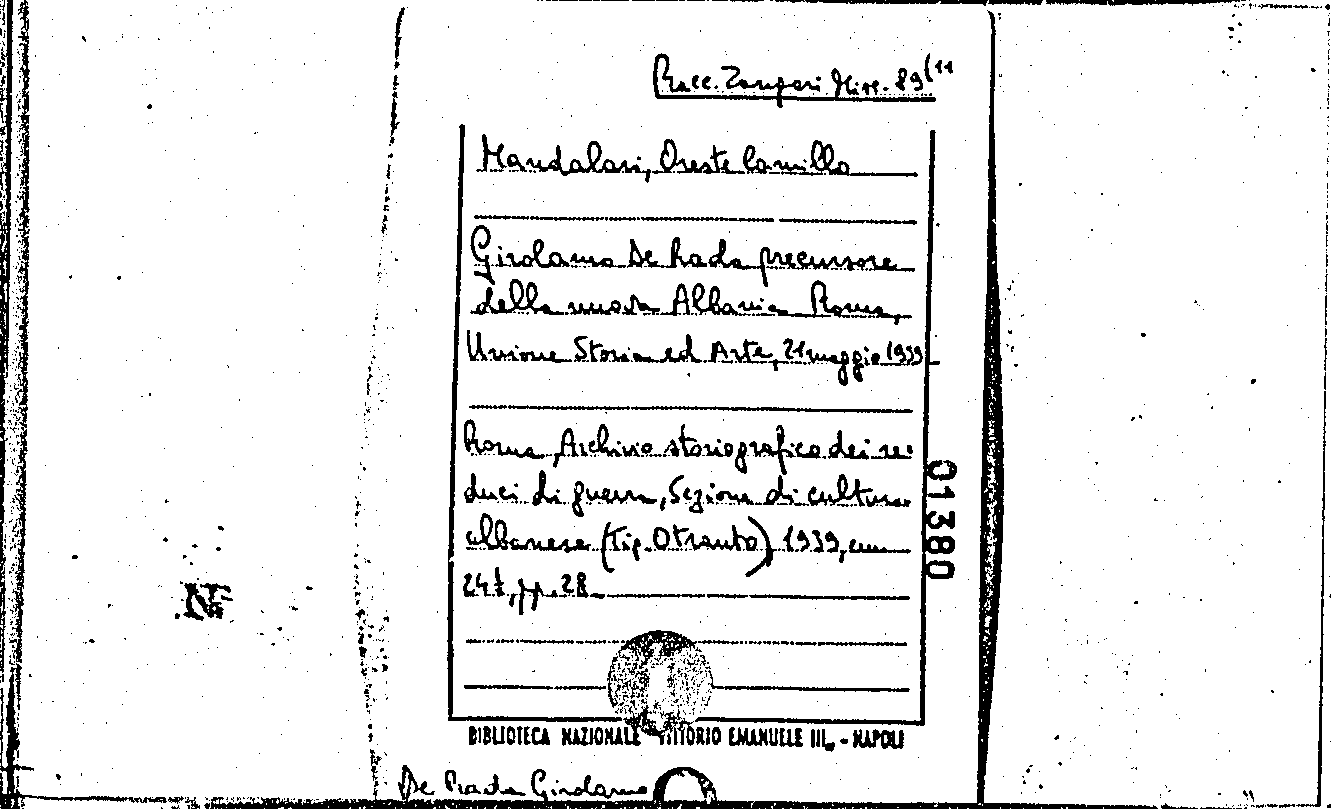 Racc. Zangari Misc. 89 (11
Mandalari, Oreste Camillo
Girolamo De Rada precursore
della nuova Albania Roma,
Unione Storia ed Arte, 21 maggio 1939
Roma, Archivio storiografico dei re-
duci di guerra, Sezione di cultura
albanese (Tip. Otranto) 1939, cm
24½, pp. 28
01380
BIBLIOTECA NAZIONALE VITTORIO EMANUELE III - NAPOLI
De Rada Girolamo